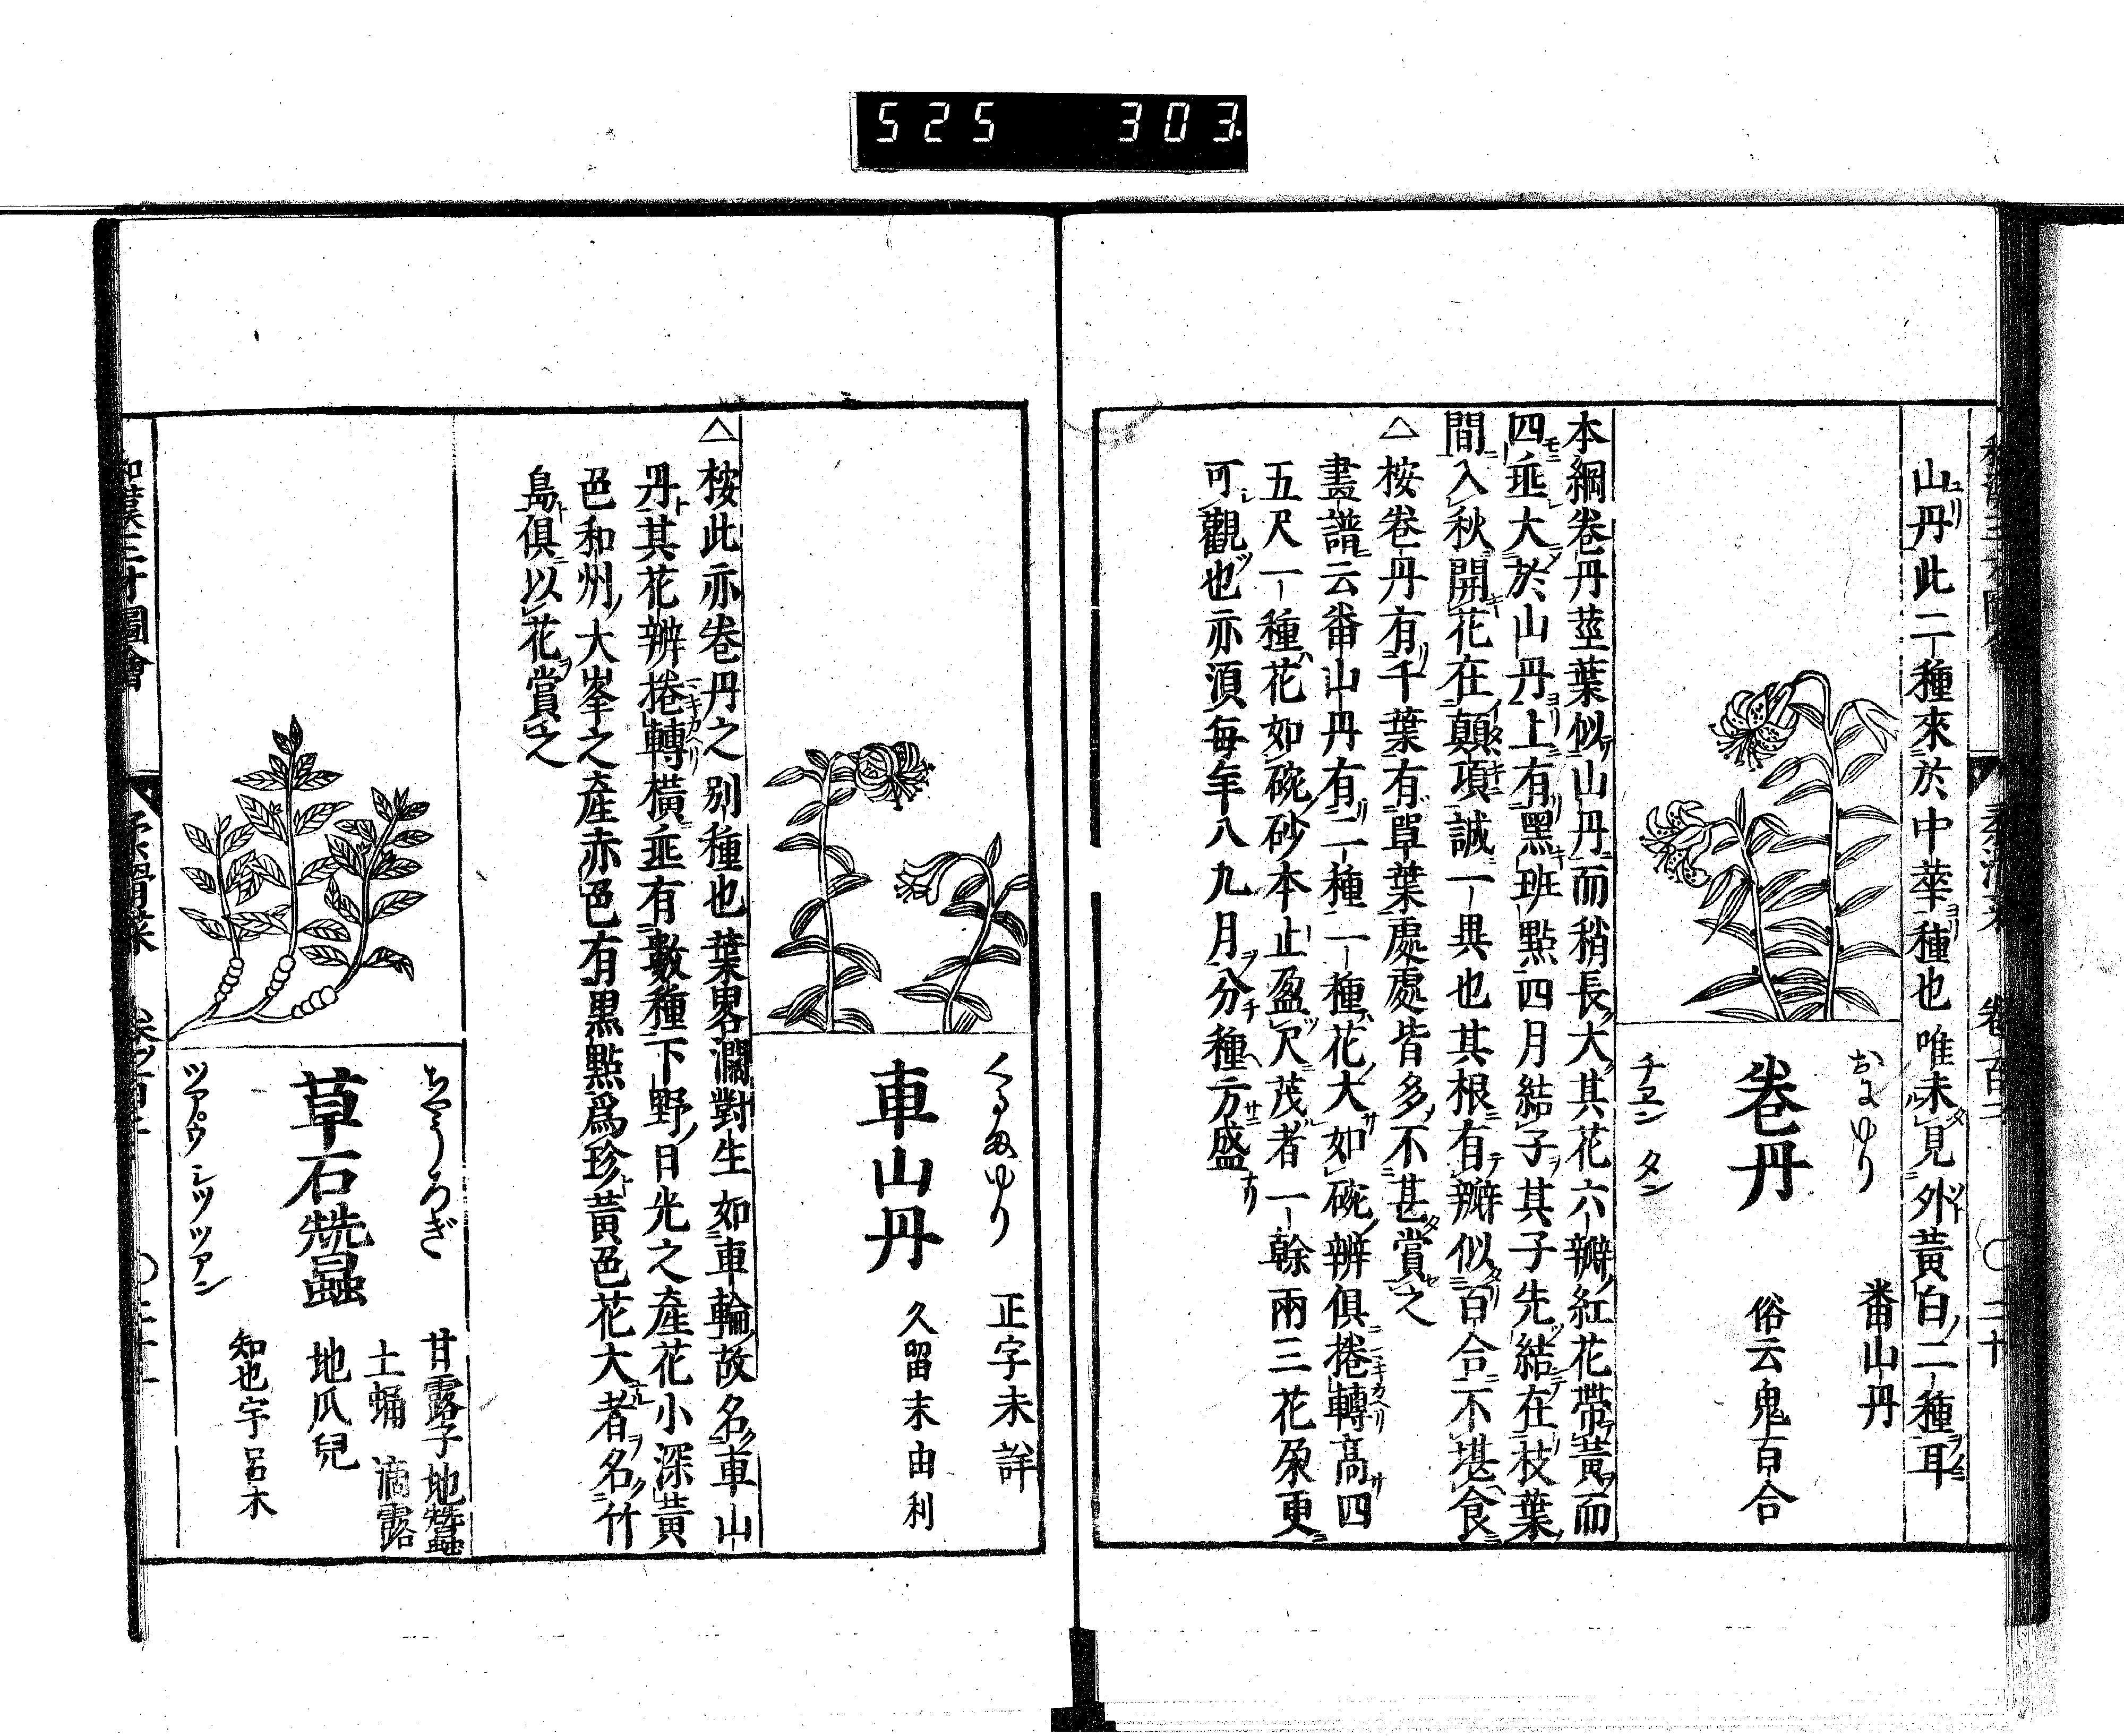 525 303
山丹此二種來於中華種也唯未見外黃白二種耳
卷丹
おにゆり
チヱン タン
番山丹
俗云鬼百合
本綱卷丹莖葉似山丹而稍長大其花六瓣紅花帶黃而
四垂大於山丹上有黑班點四月結子其子先結在枝葉
間入秋開花在顛項誠一異也其根有瓣似百合不堪食
△按卷丹有千葉有單葉處處皆多不甚賞之
畫譜云番山丹有二種一種花大如碗辨俱捲轉高四
五尺一種花如碗砂本止盈尺茂者一幹兩三花朶更
可觀也亦須每年八九月分種方盛
車山丹
くるまゆり
正字未詳
久留末由利
△按此亦卷丹之別種也葉畧濶對生如車輪故名車山
丹其花辨捲轉橫垂有數種下野日光之產花小深黃
色和州大峯之產赤色有黑點爲珍黃色花大者名竹
島俱以花賞之
草石蠶
ちやうろぎ
ツアウ シツ ツアン
甘露子 地蠶
土蛹 滴露
地瓜兒
知也宇呂木
和漢三才圖會